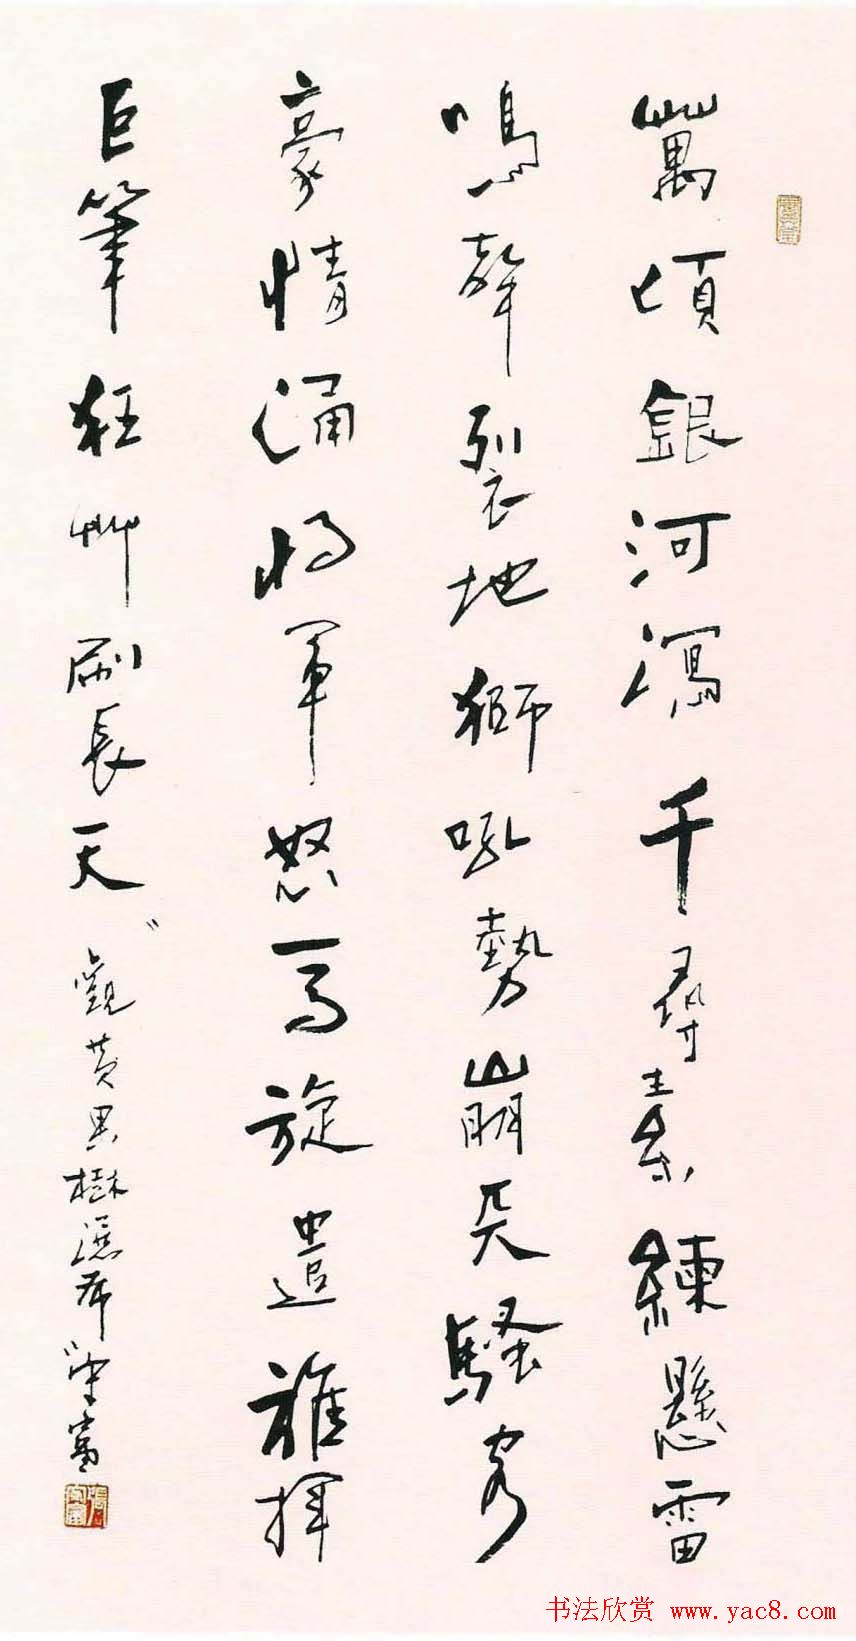 萬頃銀河瀉千尋素練懸雷
鳴聲裂地獅吼勢崩天騷客
豪情涌將軍怒馬旋遣誰揮
巨筆狂艸刷長天
觀黃果樹瀑布 守富
书法欣赏 www.yac8.com